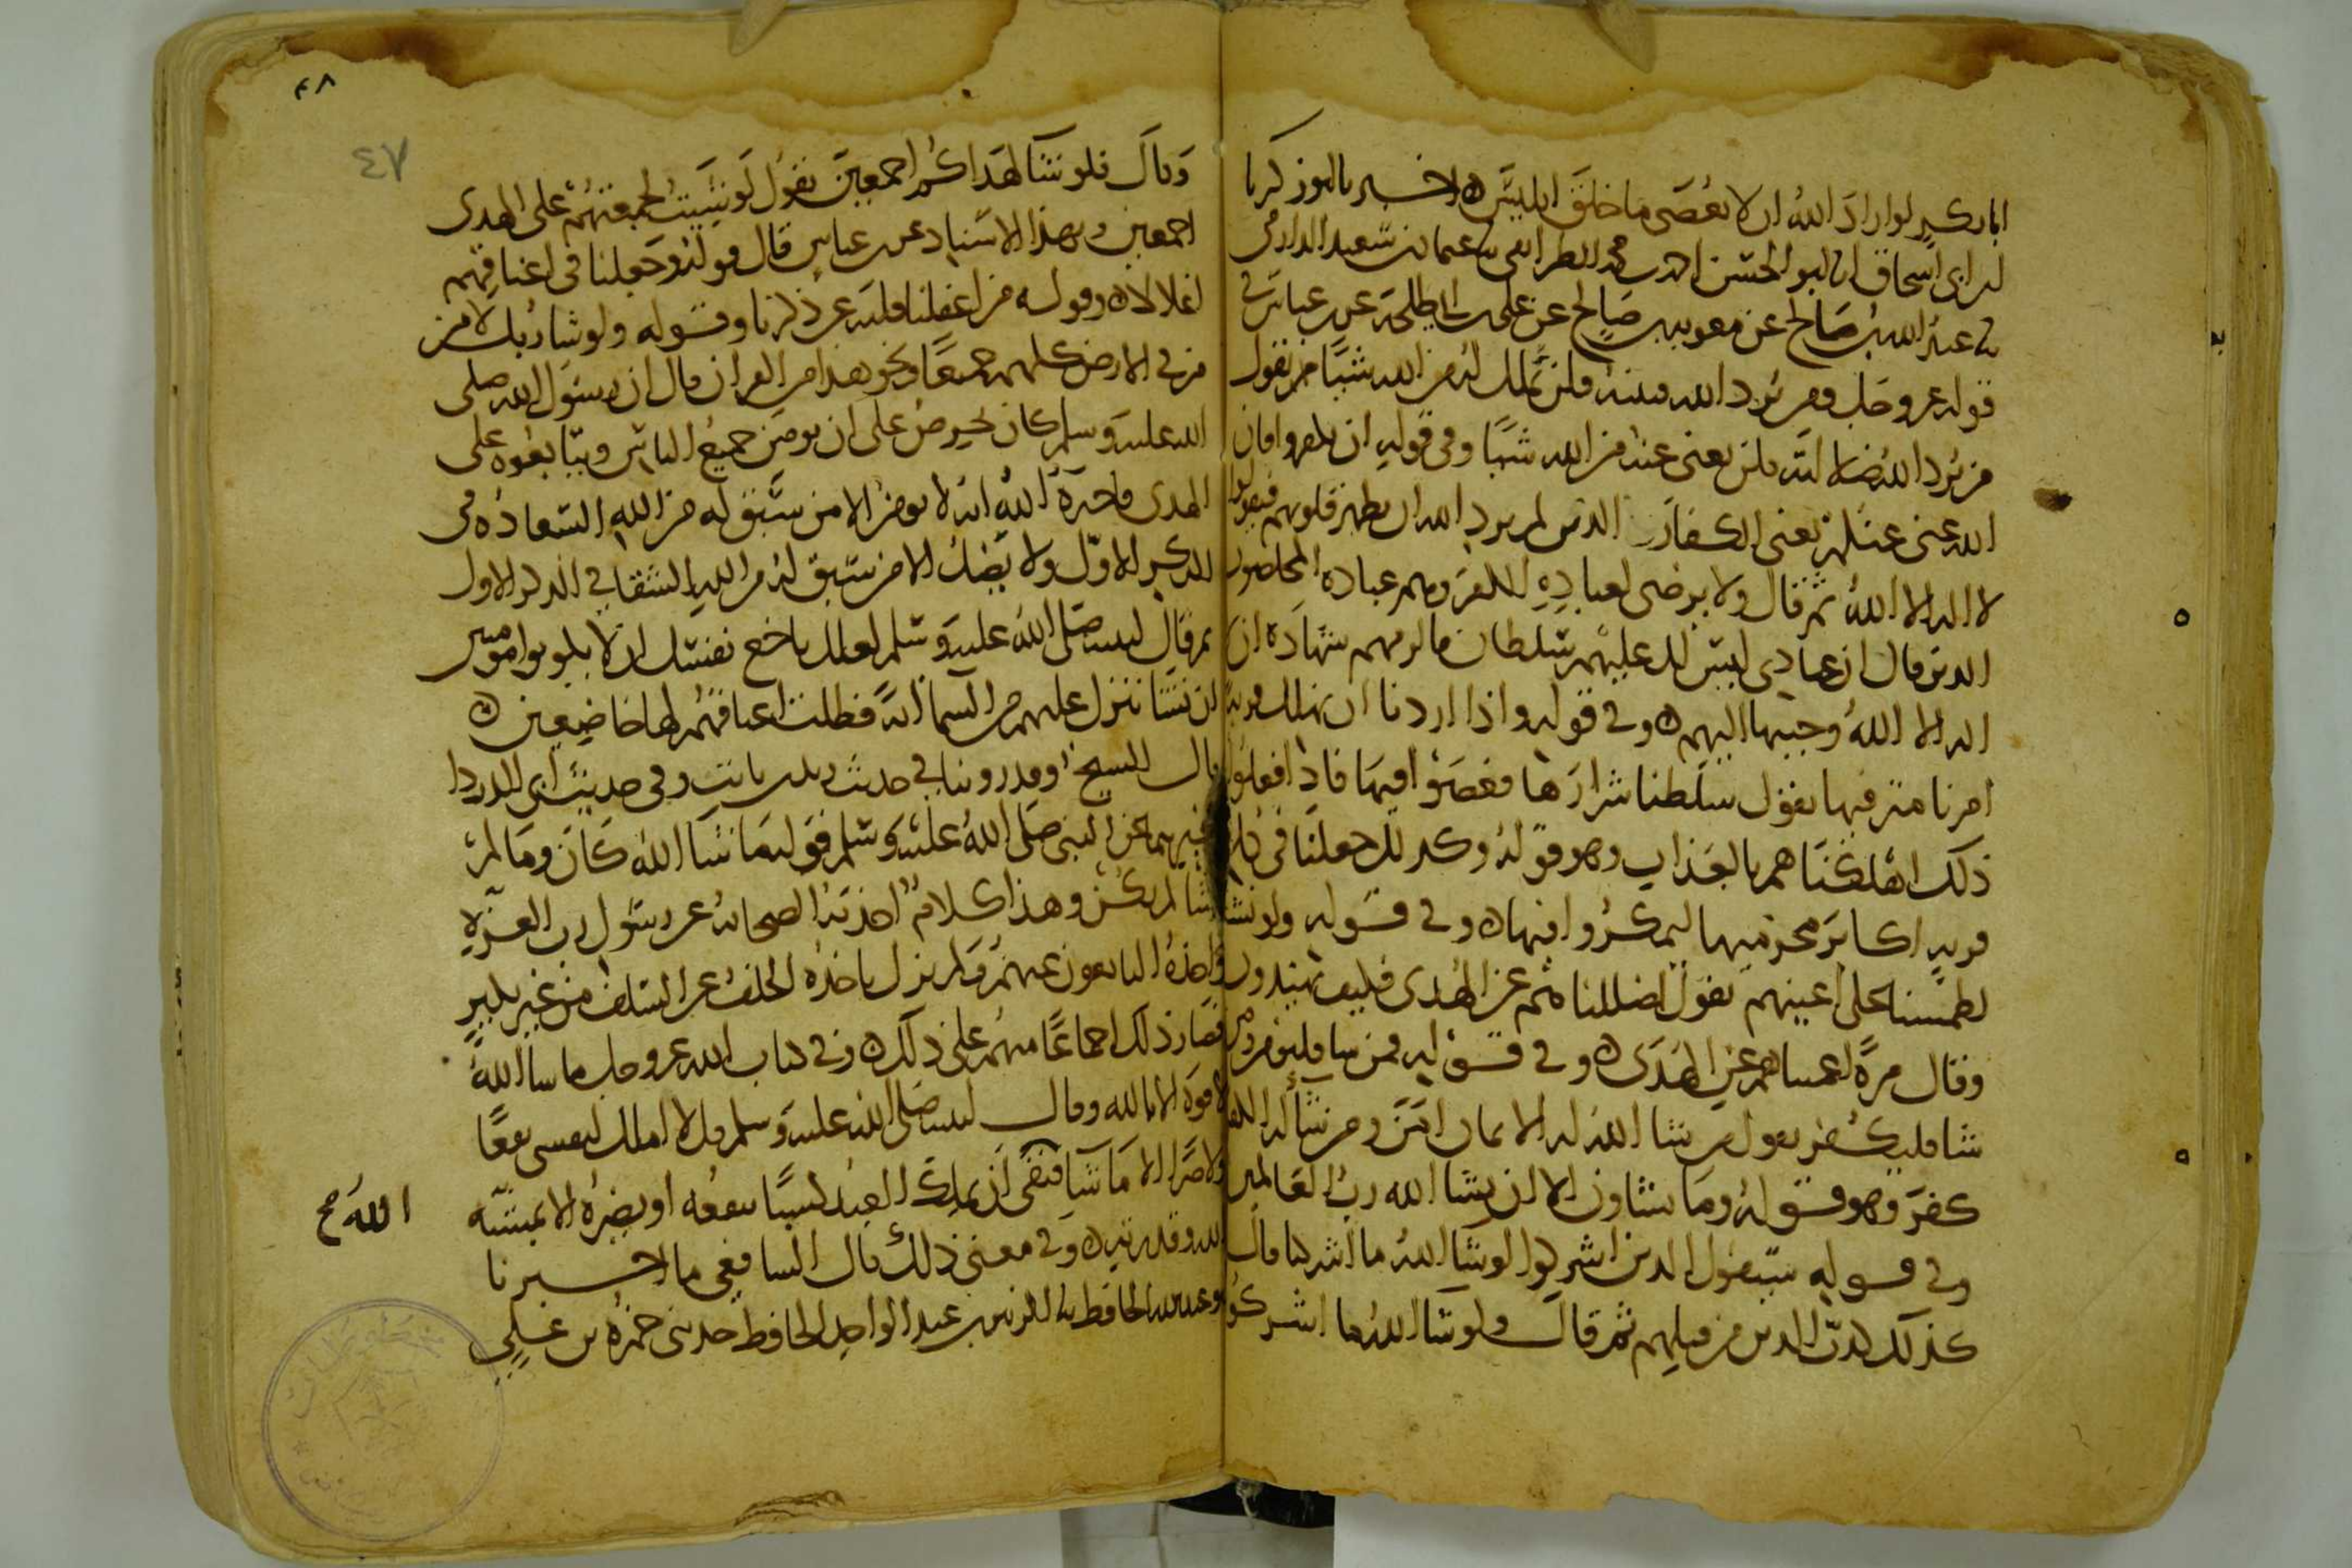 ابا بكر لو اراد الله ان لا يعصى ما خلق ابليس ه اخبرنا ابو زكريا
ابن ابى اسحاق انا ابو الحسن احمد بن محمد الطرايفى نا عثمان بن سعيد الدارمى
نا عبد الله بن صالح عن معويه بن صالح عن على بن ابى طلحة عن ابن عباس فى
قوله عز وجل ومن يرد الله فتنته فلن تملك له من الله شيئا من يقول
من يرد الله ضلالته فلن يغنى عنه من الله شيئا وفى قوله ان تكفروا فان
الله غنى عنكم يعنى الكفار الذين لم يرد الله ان يطهر قلوبهم فيقولوا
لا اله الا الله ثم قال ولا يرضى لعباده الكفر وهم عباده المخلصون
الذين قال ان عبادى ليس لك عليهم سلطان فالزمهم شهادة ان
لا اله الا الله وحببها اليهم ه وفى قوله واذا اردنا ان نهلك قرية
امرنا مترفيها يقول سلطنا شرارها فعصوا فيها فاذا فعلوا
ذلك اهلكناهم بالعذاب وهو قوله وكذلك جعلنا فى كل
قرية اكابر مجرميها ليمكروا فيها ه وفى قوله ولو نشا
لطمسنا على اعينهم يقول اضللناهم عن الهدى فكيف يهتدون
وقال مرة اعميناهم عن الهدى ه وفى قوله فمن شا فليومن ومن
شا فليكفر يقول من شا الله له الايمان امن ومن شا له الكفر
كفر وهو قوله وما تشاون الا ان يشا الله رب العالمين
وفى قوله سيقول الذين اشركوا لو شا الله ما اشركنا قال
كذلك كذب الذين من قبلهم ثم قال ولو شا الله ما اشركوا
٤٨
٤٧
وقال فلو شا لهداكم اجمعين يقول لو شيت لجمعتهم على الهدى
اجمعين وبهذا الاسناد عن ابن عباس قال قوله وجعلنا فى اعناقهم
اغلالا ه وقوله من اغفلنا قلبه عن ذكرنا وقوله ولو شا ربك لامن
من فى الارض كلهم جميعا ونحو هذا من القران قال ان رسول الله صلى
الله عليه وسلم كان يحرص على ان يومن جميع الناس ويتابعوه على
الهدى فاخبره الله انه لا يومن الا من سبق له من الله السعادة فى
الذكر الاول ولا يضل الا من سبق له من الله الشقا فى الذكر الاول
ثم قال لنبيه صلى الله عليه وسلم لعلك باخع نفسك ان لا يكونوا مومنين
ان نشا ننزل عليهم من السما اية فظلت اعناقهم لها خاضعين ه
قال الشيخ وقد روينا فى حديث زيد بن ثابت وفى حديث ابى الدردا
وغيرهما عن النبى صلى الله عليه وسلم قوله ما شا الله كان وما لم
يشا لم يكن وهذا كلام اخذته الصحابة عن رسول رب العزة
واخذه التابعون عنهم ولم يزل ياخذه الخلف عن السلف من غير نكير
فصار ذلك اجماعا منهم على ذلك ه وفى كتاب الله عز وجل ما شا الله
لا قوة الا بالله وقال لنبيه صلى الله عليه وسلم قل لا املك لنفسى نفعا
ولا ضرا الا ما شا فنفى ان يملك العبد كسبا ينفعه او يضره الا بمشيئة
الله صح
الله وقدرته ه وفى معنى ذلك قال الشافعى ما اخبرنا
ابو عبد الله الحافظ نا الزبير بن عبد الواحد الحافظ حدثنى حمزة بن على